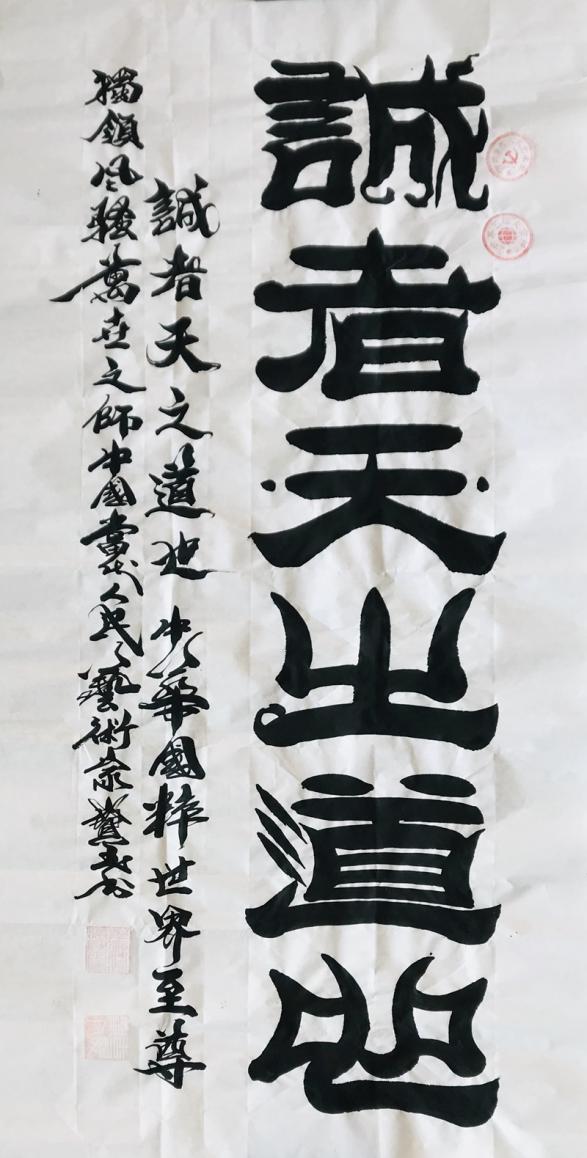 誠者天之道也
誠者天之道也中華國粹世界至尊
獨領风騷萬世之師中國當代人民藝術家龔